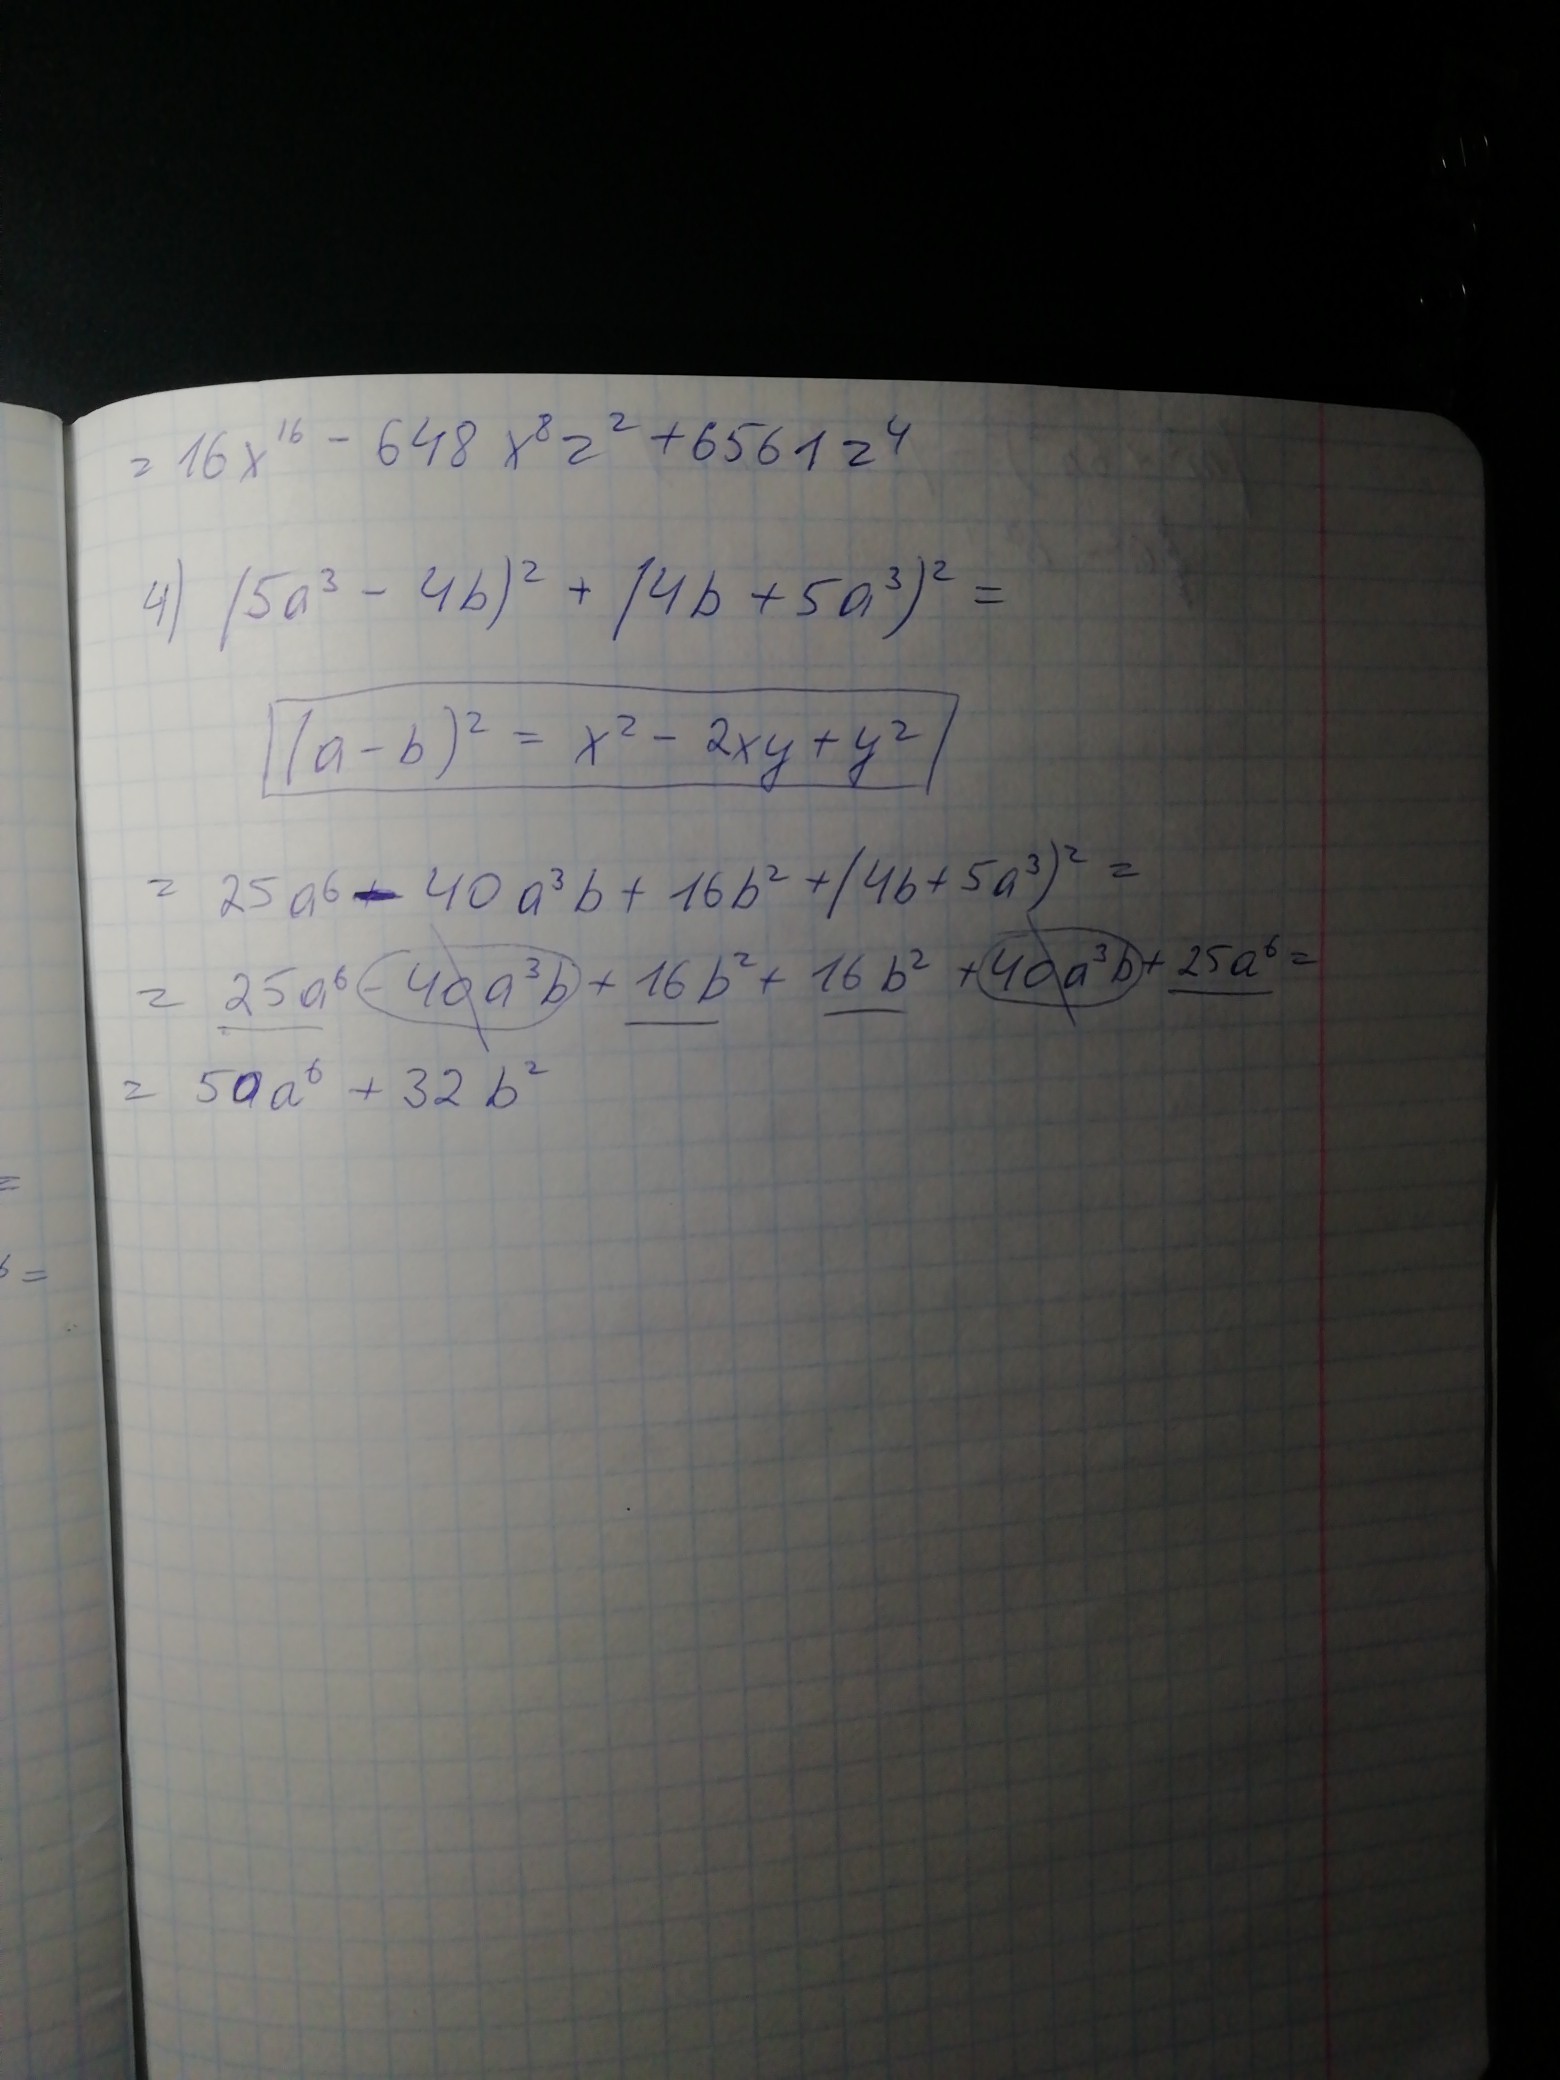 = 16x¹⁶ - 648x⁸z² + 6561z⁴
4) (5a³ - 4b)² + (4b + 5a³)² =
(a-b)² = x² - 2xy + y²
= 25a⁶ - 40a³b + 16b² + (4b+5a³)² =
= 25a⁶ - 40a³b + 16b² + 16b² + 40a³b + 25a⁶ =
= 50a⁶ + 32b²
=
6 =